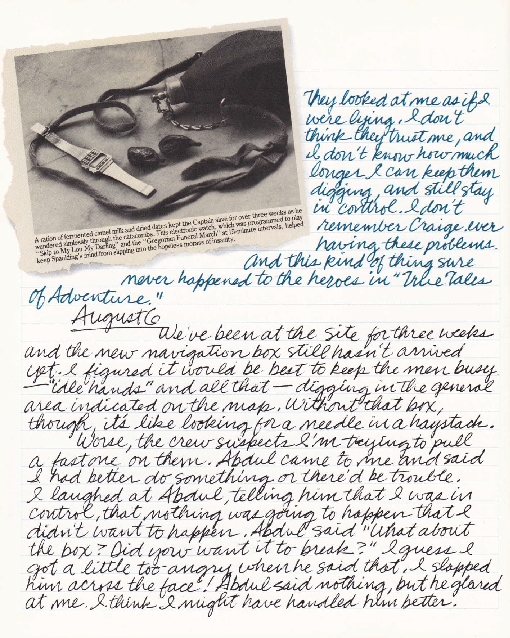 They looked at me as if I
were lying. I don't
think they trust me, and
I don't know how much
longer I can keep them
digging, and still stay
in control. I don't
remember Craige ever
having these problems.
And this kind of thing sure
never happened to the heroes in "True Tales
of Adventure."
A ration of fermented camel milk and dried dates kept the Captain alive for over three weeks as he
wandered aimlessly through the catacombs. This electronic watch, which was programmed to play
"Skip to My Lou My Darling" and the "Gregorian Funeral March" at 15-minute intervals, helped
keep Spalding's mind from sapping into the hopeless morass of insanity.
August 6
We've been at the site for three weeks
and the new navigation box still hasn't arrived
yet. I figured it would be best to keep the men busy
— "idle hands" and all that — digging in the general
area indicated on the map. Without that box,
though, it's like looking for a needle in a haystack.
Worse, the crew suspects I'm trying to pull
a fast one on them. Abdul came to me and said
I had better do something or there'd be trouble.
I laughed at Abdul, telling him that I was in
control, that nothing was going to happen that I
didn't want to happen. Abdul said "What about
the box? Did you want it to break?" I guess I
got a little too angry when he said that. I slapped
him across the face! Abdul said nothing, but he glared
at me. I think I might have handled him better.